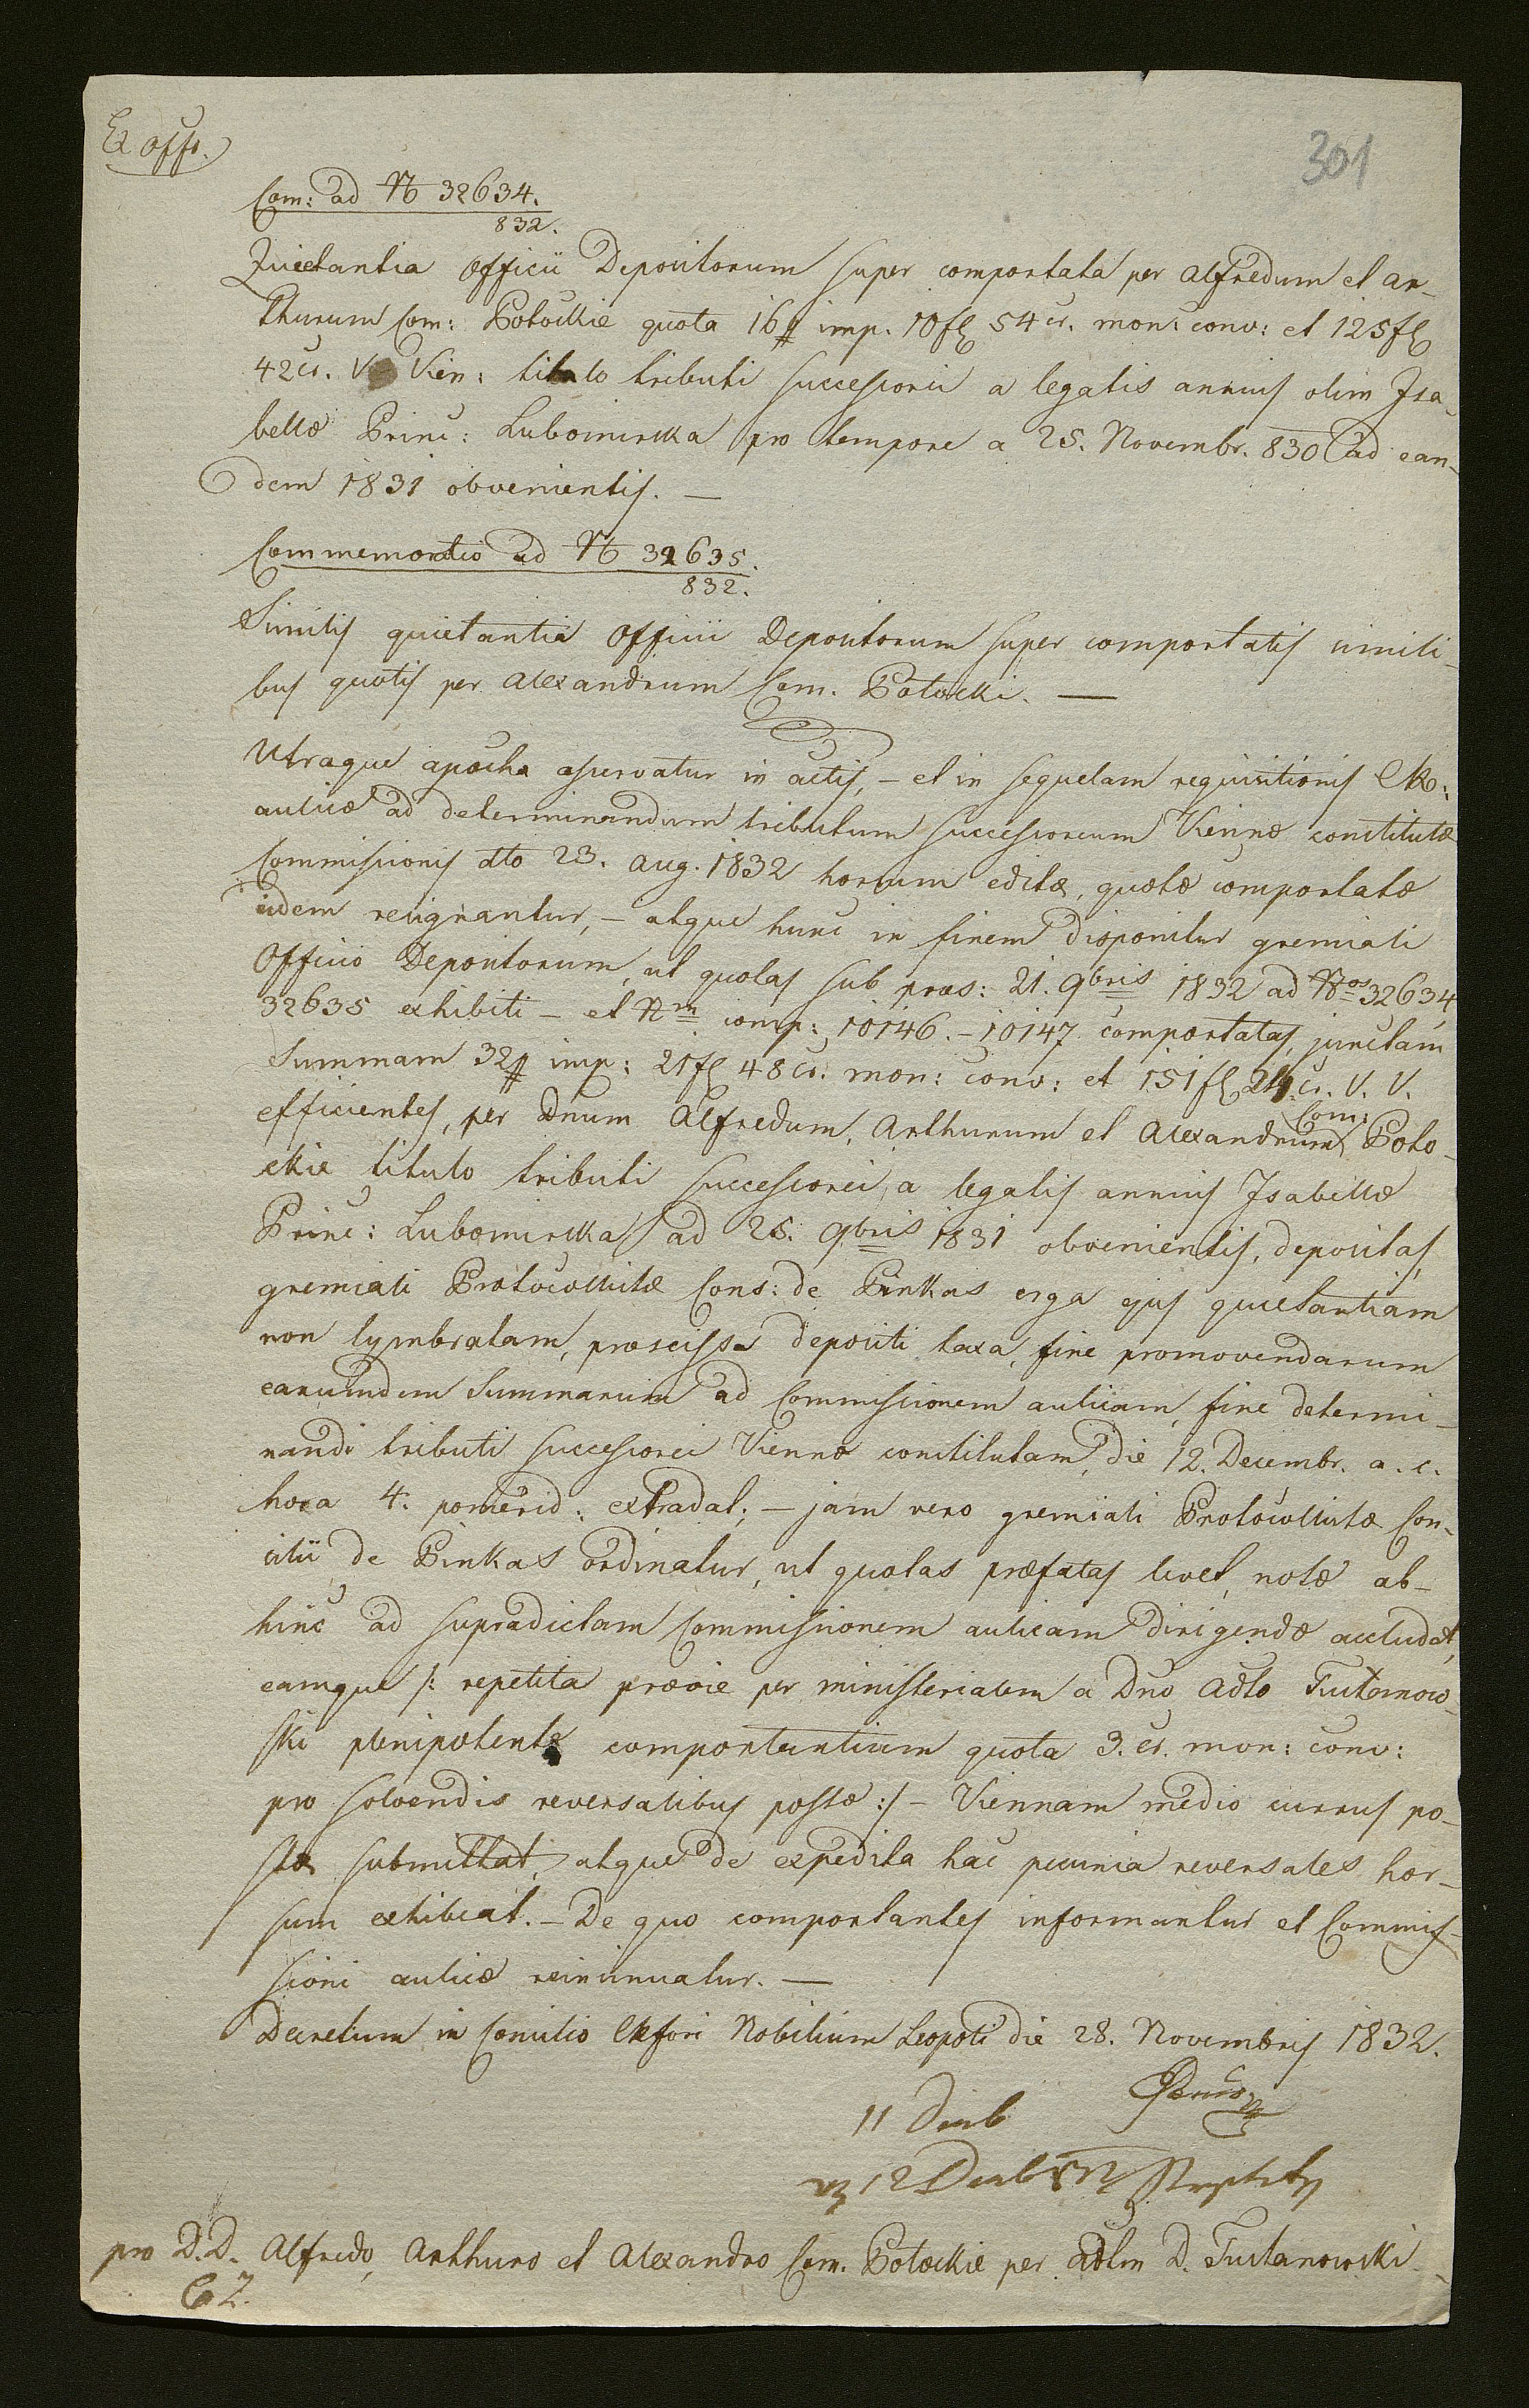 Ex offo.
301
Com: ad N 32634.
832.
Quietantia Officii Depositorum super comportata per Alfredum et Ar-
thurum Com: Potockie quota 16# imp. 10 fl 54 cr. mon: conv: et 125 fl
42 cr. V. Vien: titulo tributi successorei a legatis annuis olim Isa-
bellæ Princ: Lubomirska pro tempore a 25. Novembr. 830 ad ean-
dem 1831 obvenientis. —
Commemoratio ad N 32635.
832.
Similis quietantia Officii Depositorum super comportatis simili-
bus quotis per Alexandrum Com. Potocki. —
Utraque apocha asservatur in actis, – et in sequelam requisitionis CR:
aulicæ ad determinandum tributum successoreum Viennæ constitutæ
Commissionis dto 23. Aug. 1832 horsum editæ, quotæ comportatæ
eidem resignantur, – atque hunc in finem disponitur gremiali
Officio Depositorum, ut quotas sub præs: 21. 9bris 1832 ad Nos 32634
32635 exhibiti – et Nm comp: 10146. – 10147 comportatas, junctam
Summam 32# imp: 21 fl 48 cr. mon: conv: et 151 fl 24 cr. V. V.
efficientes, per Dnum Alfredum, Arthurum et Alexandrum Com: Poto-
ckie titulo tributi successorei, a legatis annuis Isabellæ
Princ: Lubomirska ad 25. 9bris 1831 obvenientis, depositas,
gremiali Protocollistæ Cons: de Pinkas erga ejus quietantiam
non tymbratam, præscissa depositi taxa, fine promovendarum
earumdem Summarum ad Commissionem aulicam, fine determi-
nandi tributi successorei Viennæ constitutam, die 12. Decembr. a. c.
hora 4. pomerid: extradat; – jam vero gremiali Protocollistæ Con-
silii de Pinkas ordinatur, ut quotas præfatas levet, notæ ab-
hinc ad supradictam Commissionem aulicam dirigendæ accludat,
eamque /: repetita prævie per ministerialem a Dno Adto Tustanow-
ski plenipotente comportantium quota 3. cr. mon: conv:
pro solvendis reversalibus postæ :/ – Viennam medio currus po-
stæ submittat, atque de expedita hac pecunia reversales hor-
sum exhibeat. – De quo comportantes informantur et Commis-
sioni aulicæ reinsinuatur. —
Decretum in Consilio CR fori Nobilium Leopoli die 28. Novembris 1832.
11 Dinb
12 Dinb
pro D.D. Alfredo, Arthuro et Alexandro Com. Potockie per Adtm D. Tustanowski